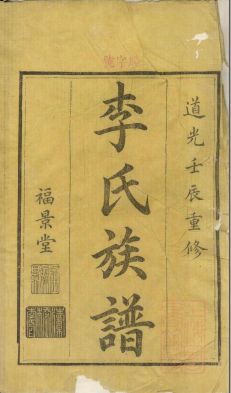 道光壬辰重修
李氏族譜
福景堂